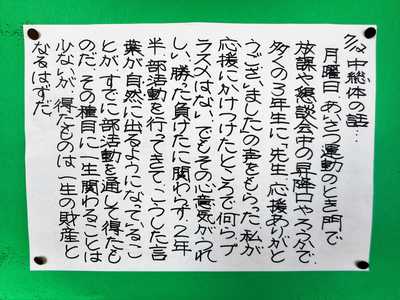 7/12 中総体の話…
月曜日 あいさつ運動のとき門で
放課や懇談会中の昇降口やろう下で
多くの3年生に「先生、応援ありがと
うございました」の声をもらった。私が
応援にかけつけたところで何らプ
ラスメはない。でもその心意気がうれ
しい。勝った負けたに関わらず、2年
半、部活動を行ってきて、こうした言
葉が自然に出るようになっているこ
とが、すでに部活動を通して得たも
のだ。その種目に一生関わることは
少ないが、得たものは一生の財産と
なるはずだ。